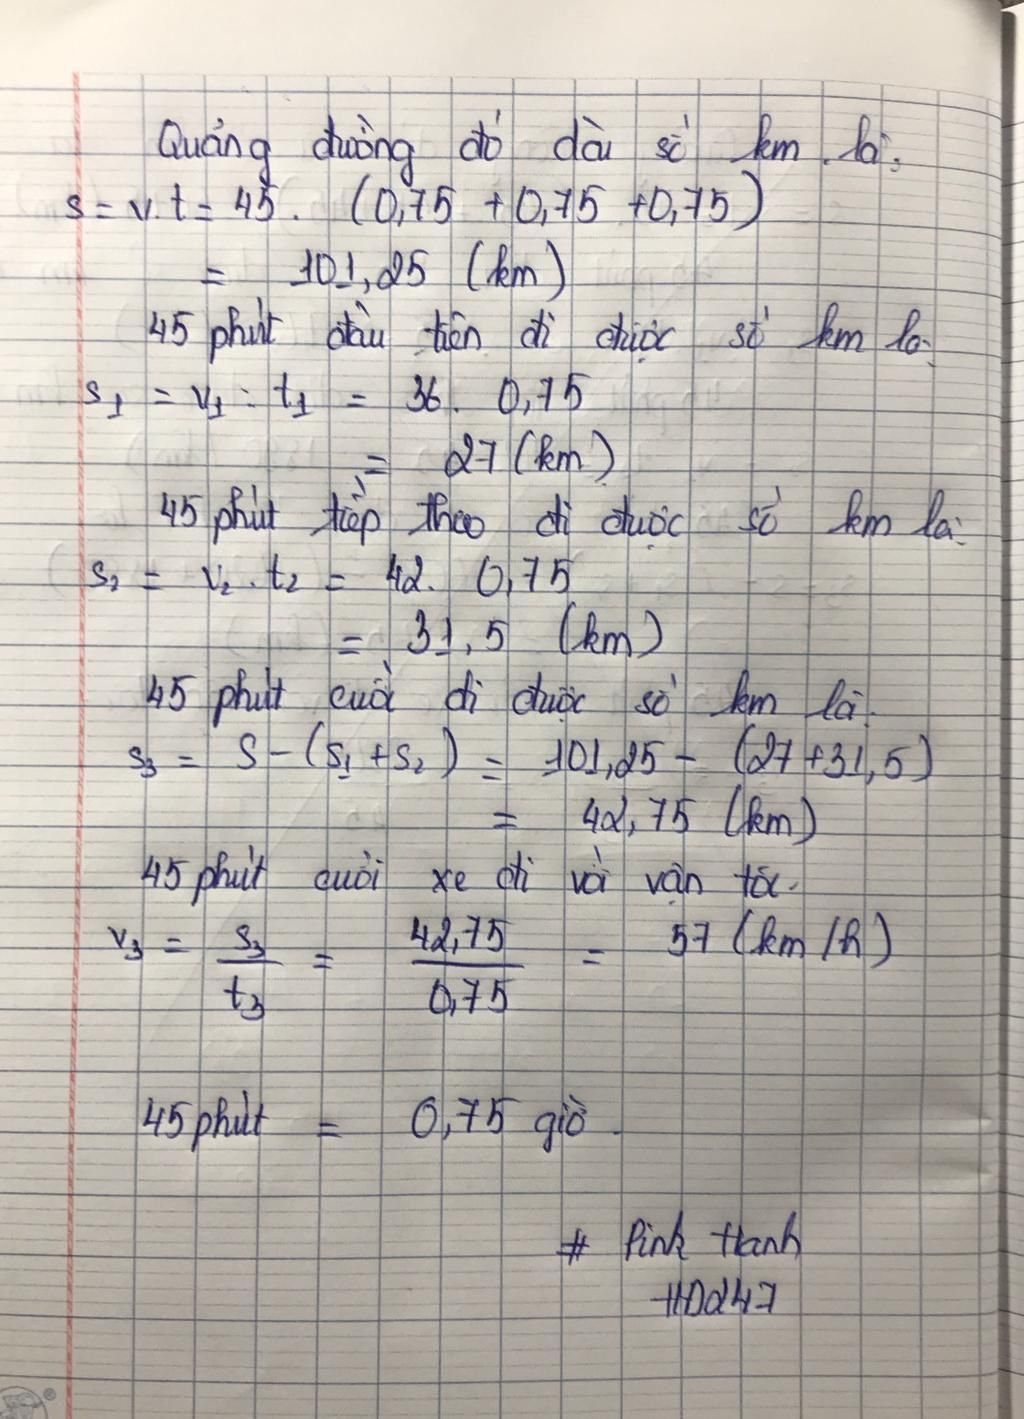 Quảng đường đó dài số km là:
s = v.t = 45. (0,75 + 0,75 + 0,75)
= 101,25 (km)
45 phút đầu tiên đi được số km là:
s1 = v1 . t1 = 36. 0,75
= 27 (km)
45 phút tiếp theo đi được số km là:
s2 = v2 . t2 = 42. 0,75
= 31,5 (km)
45 phút cuối đi được số km là:
s3 = S - (s1 + s2) = 101,25 - (27 + 31,5)
= 42,75 (km)
45 phút cuối xe đi với vận tốc.
v3 = s3/t3 = 42,75/0,75 = 57 (km/h)
45 phút = 0,75 giờ.
# Pink Hanh
HD247